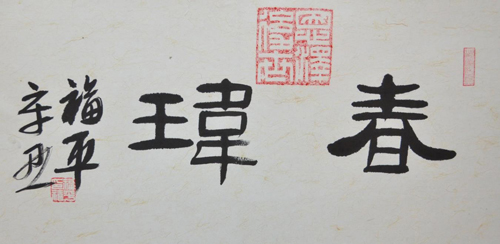 春瑋
辛丑
福平